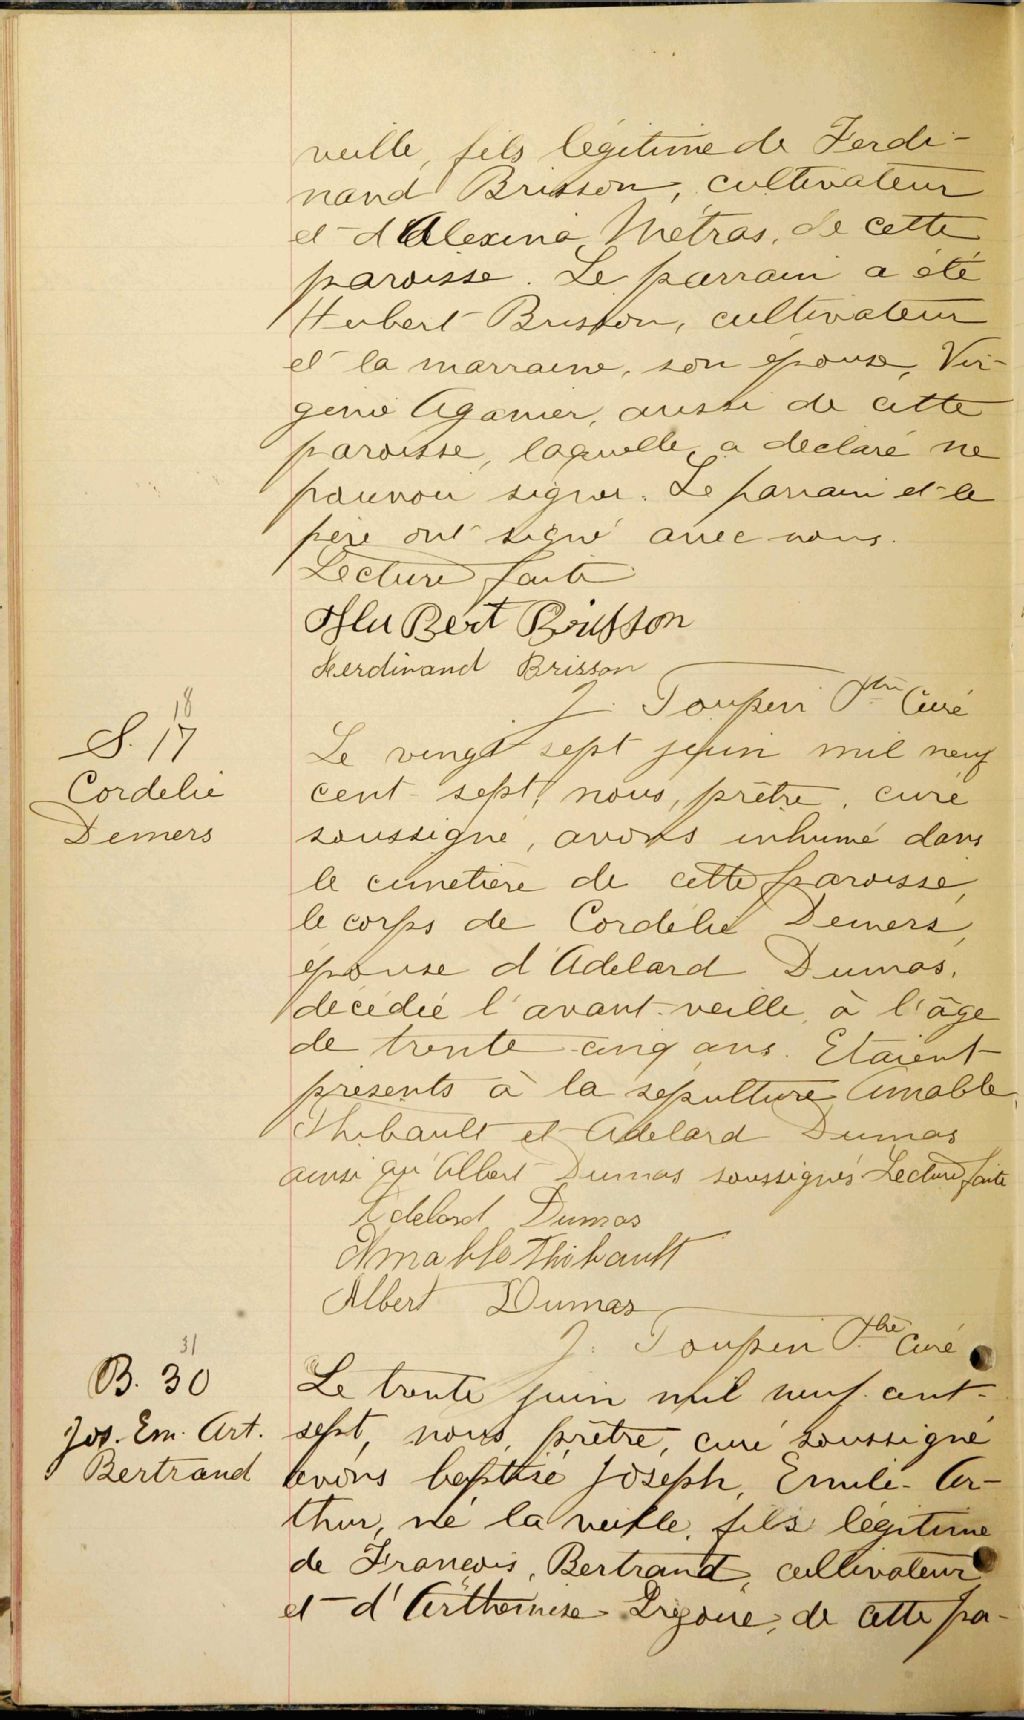 veille, fils légitime de Ferdi-
nand Brisson, cultivateur
et d'Alexina Métras, de cette
paroisse. Le parrain a été
Hubert Brisson, cultivateur
et la marraine, son épouse, Vir-
ginie Aganier, aussi de cette
paroisse, laquelle a déclaré ne
pouvoir signer. Le parrain et le
père ont signé avec nous.
Lecture faite
Hubert Brisson
Ferdinand Brisson
J. Toupin Ptre Curé
18
S. 17
Cordélie
Demers
Le vingt sept juin mil neuf
cent sept, nous, prêtre, curé
soussigné, avons inhumé dans
le cimetière de cette paroisse,
le corps de Cordélie Demers,
épouse d'Adelard Dumas,
décédée l'avant-veille, à l'âge
de trente-cinq ans. Etaient
présents à la sépulture Amable
Thibault et Adelard Dumas
ainsi qu'Albert Dumas soussignés Lecture faite
Adelard Dumas
Amable Thibault
Albert Dumas
J. Toupin Ptre Curé
31
B. 30
Jos. Em. Art.
Bertrand
Le trente juin mil neuf cent-
sept, nous, prêtre, curé soussigné
avons baptisé Joseph, Emile-Ar-
thur, né la veille, fils légitime
de François Bertrand, cultivateur
et d'Arthémise Grégoire, de cette pa-